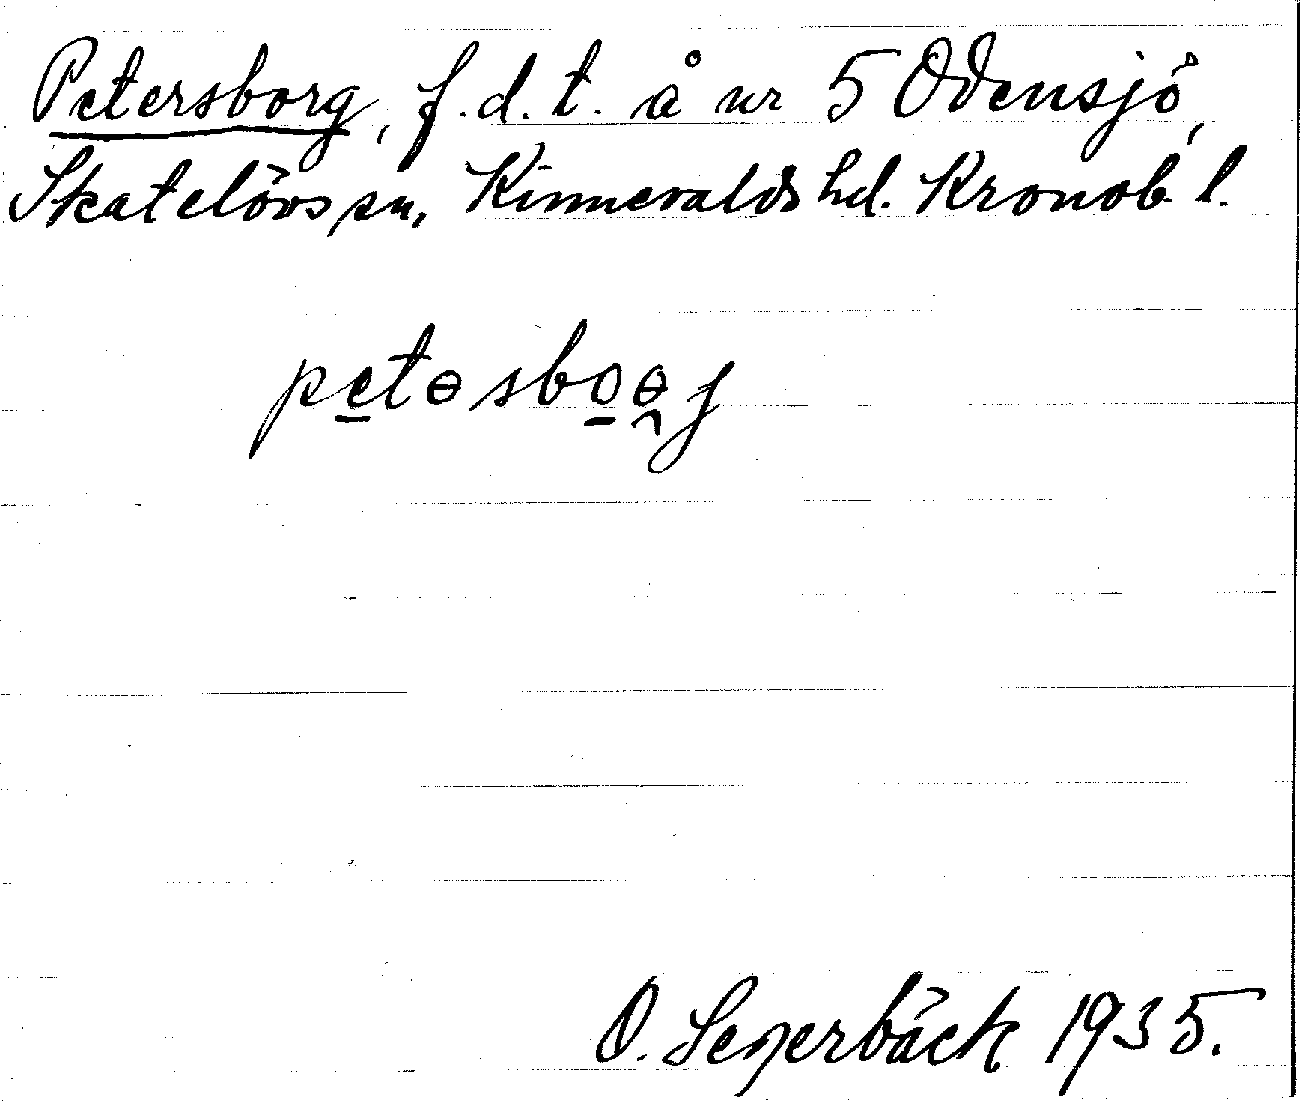 Petersborg, f.d.t. å nr 5 Odensjö,
Skatelövs sn, Kinnevalds hd. Kronob. l.
petɵsboɵ̯j
O. Segerbäck 1935.